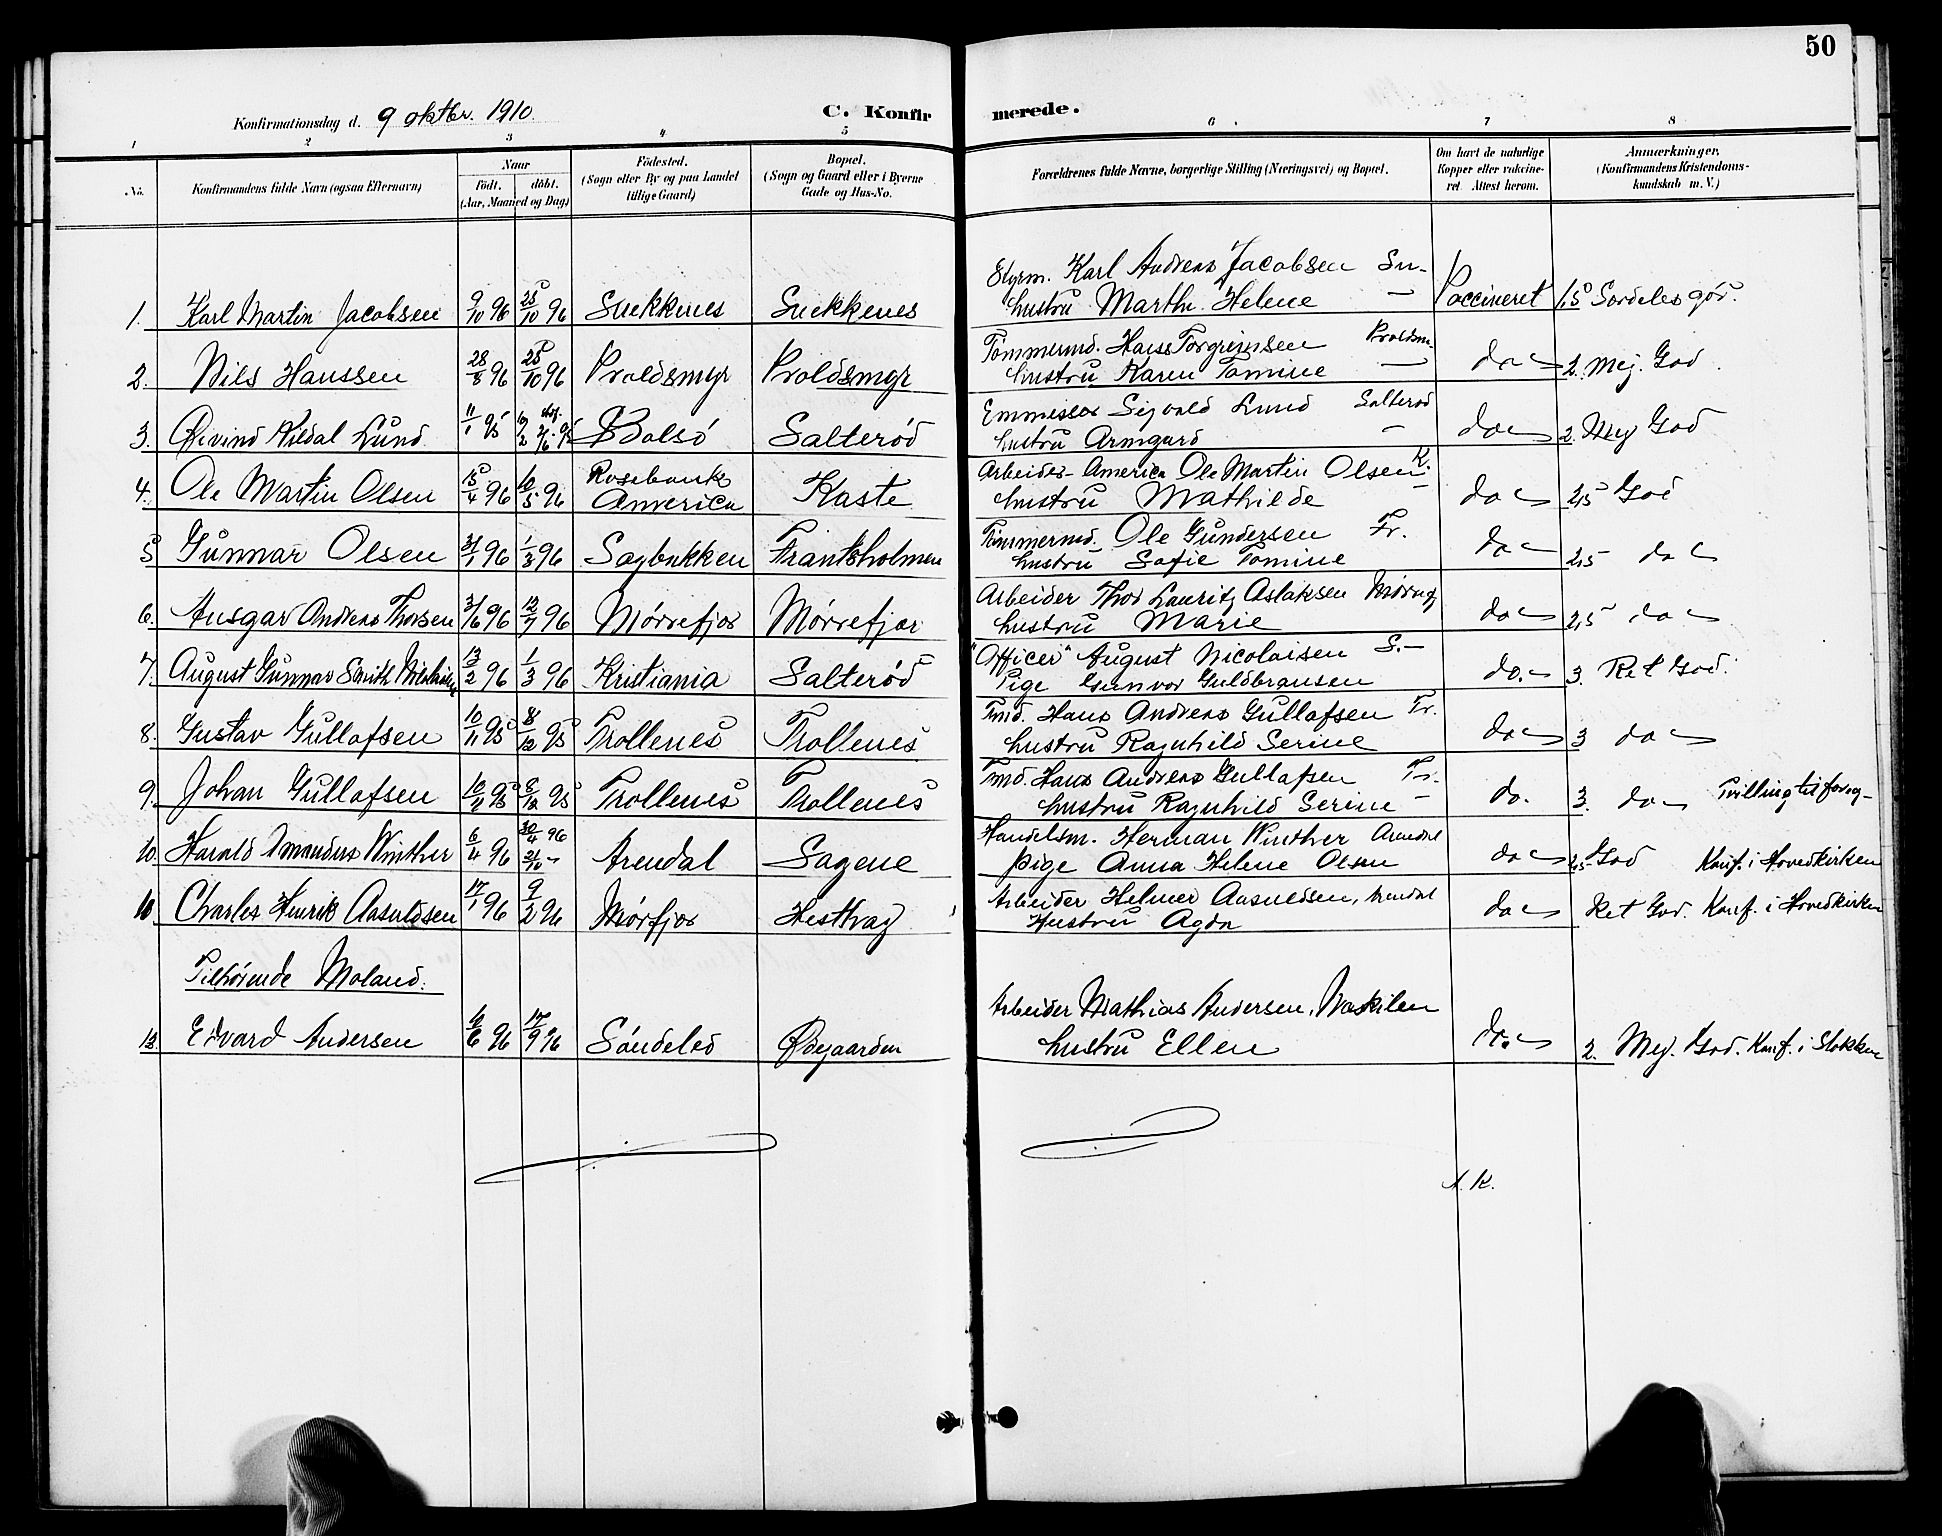 50
Konfirmationsdag d. 9 oktbr. 1910. C. Konfirmerede.
1 2 3 4 5 6 7 8
No. Konfirmandens fulde Navn (ogsaa Efternavn) Naar født. døbt. (Aar, Maaned og Dag) Fødested. (Sogn eller By og paa Landet tillige Gaard) Bopæl. (Sogn og Gaard eller i Byerne Gade og Hus-No. Forældrenes fulde Navne, borgerlige Stilling (Næringsvei) og Bopæl. Om havt de naturlige Kopper eller vakcineret. Attest herom. Anmærkninger. (Konfirmandens Kristendomskundskab m. V.)
Styrm. Karl Andreas Jacobsen Sn-
1. Karl Martin Jacobsen 9/10 96 25/10 96 Snekkenes Snekkenes hustru Marthe Helene — Vaccineret 1,5 Særdeles god.
Tømmermd. Hans Torgrimsen Proldsm.
2. Nils Hanssen 28/8 96 25/10 96 Proldsmyr Proldsmyr hustru Karen Tomine — do 2. Meg. God
Emmissær Sigvald Lund Salterød
3. Øivind Vildal Lund 11/1 95 Salterød hustru Armgard - do 2. Meg God
Rosebank Arbeider- America Ole Martin Olsen K.
4. Ole Martin Olsen 15/4 96 10/5 96 America Kaste hustru Mathilde do 2,5 God
Tømmermd. Ole Gundersen Fr.
5 Gunnar Olsen 31/1 96 1/3 96 Sagbækken Frantsholmen hustru Sofie Tomine do 2,5 do
Arbeider Thor Lauritz Aslaksen Mørref
6. Ansgar Andreas Thorsen 3/6 96 12/7 96 Mørrefjær Mørrefjær hustru Marie do 2,5 do
"Officer" August Nicolaisen S.-
7. August Gunnar Smith Nicolaisen 13/2 96 1/3 96 Kristiania Salterød Pige Gunvor Guldbransen do. 3. Ret God.
Tmd. Hans Andreas Gullofsen Tr.
8. Gustav Gullofsen 10/11 95 8/12 95 Trollenes Trollenes hustru Ragnhild Serine do 3 do
Tmd. Hans Andreas Gullofsen Tr.
9. Johan Gullofsen 10/11 95 8/12 95 Trollenes Trollenes hustru Ragnhild Serine - do. 3. do Tvilling til foreg-
Handelsm. Herman Winther Arendal
10. Harald Amandus Winther 6/4 96 30/4 96 21/10 - Arendal Sagene pige Anna Helene Olsen do 2,5 God Konf. i Hovedkirken
Arbeider Helmer Aasuldsen, Arendal
11 Charles Henrik Aasuldsen 17/1 96 9/2 96 Mørfjær Hesthag Hustru Agda do Ret God. Konf. i Hovedkirken
Tilhørende Moland:
Arbeider Mathias Andersen, Vaskilen
12 Edvard Andersen 10/6 96 17/9 96 Søndeled Ødegaarden hustru Ellen do. 2. Meg. God. Konf. i Stokken
A. K.